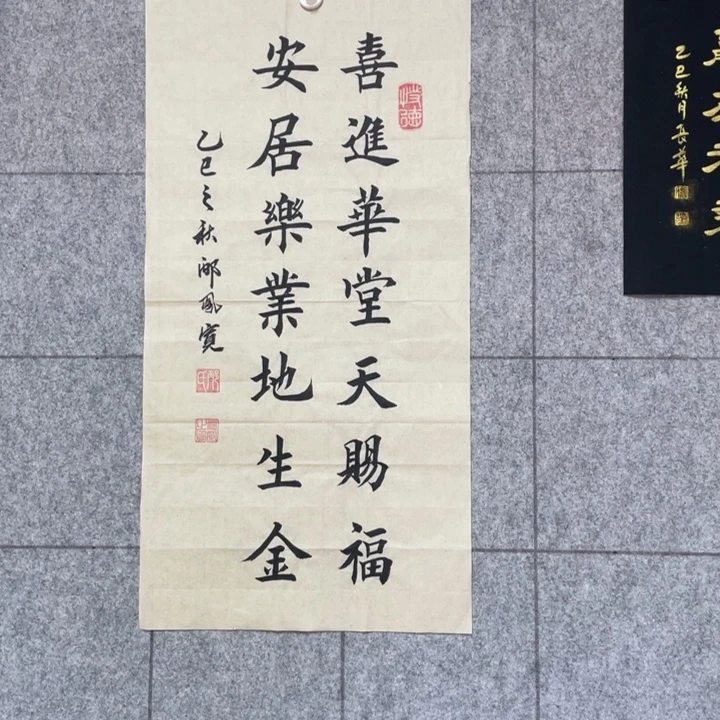 喜進華堂天賜福
安居樂業地生金
乙巳之秋邴鳳寬
乙巳秋月長華